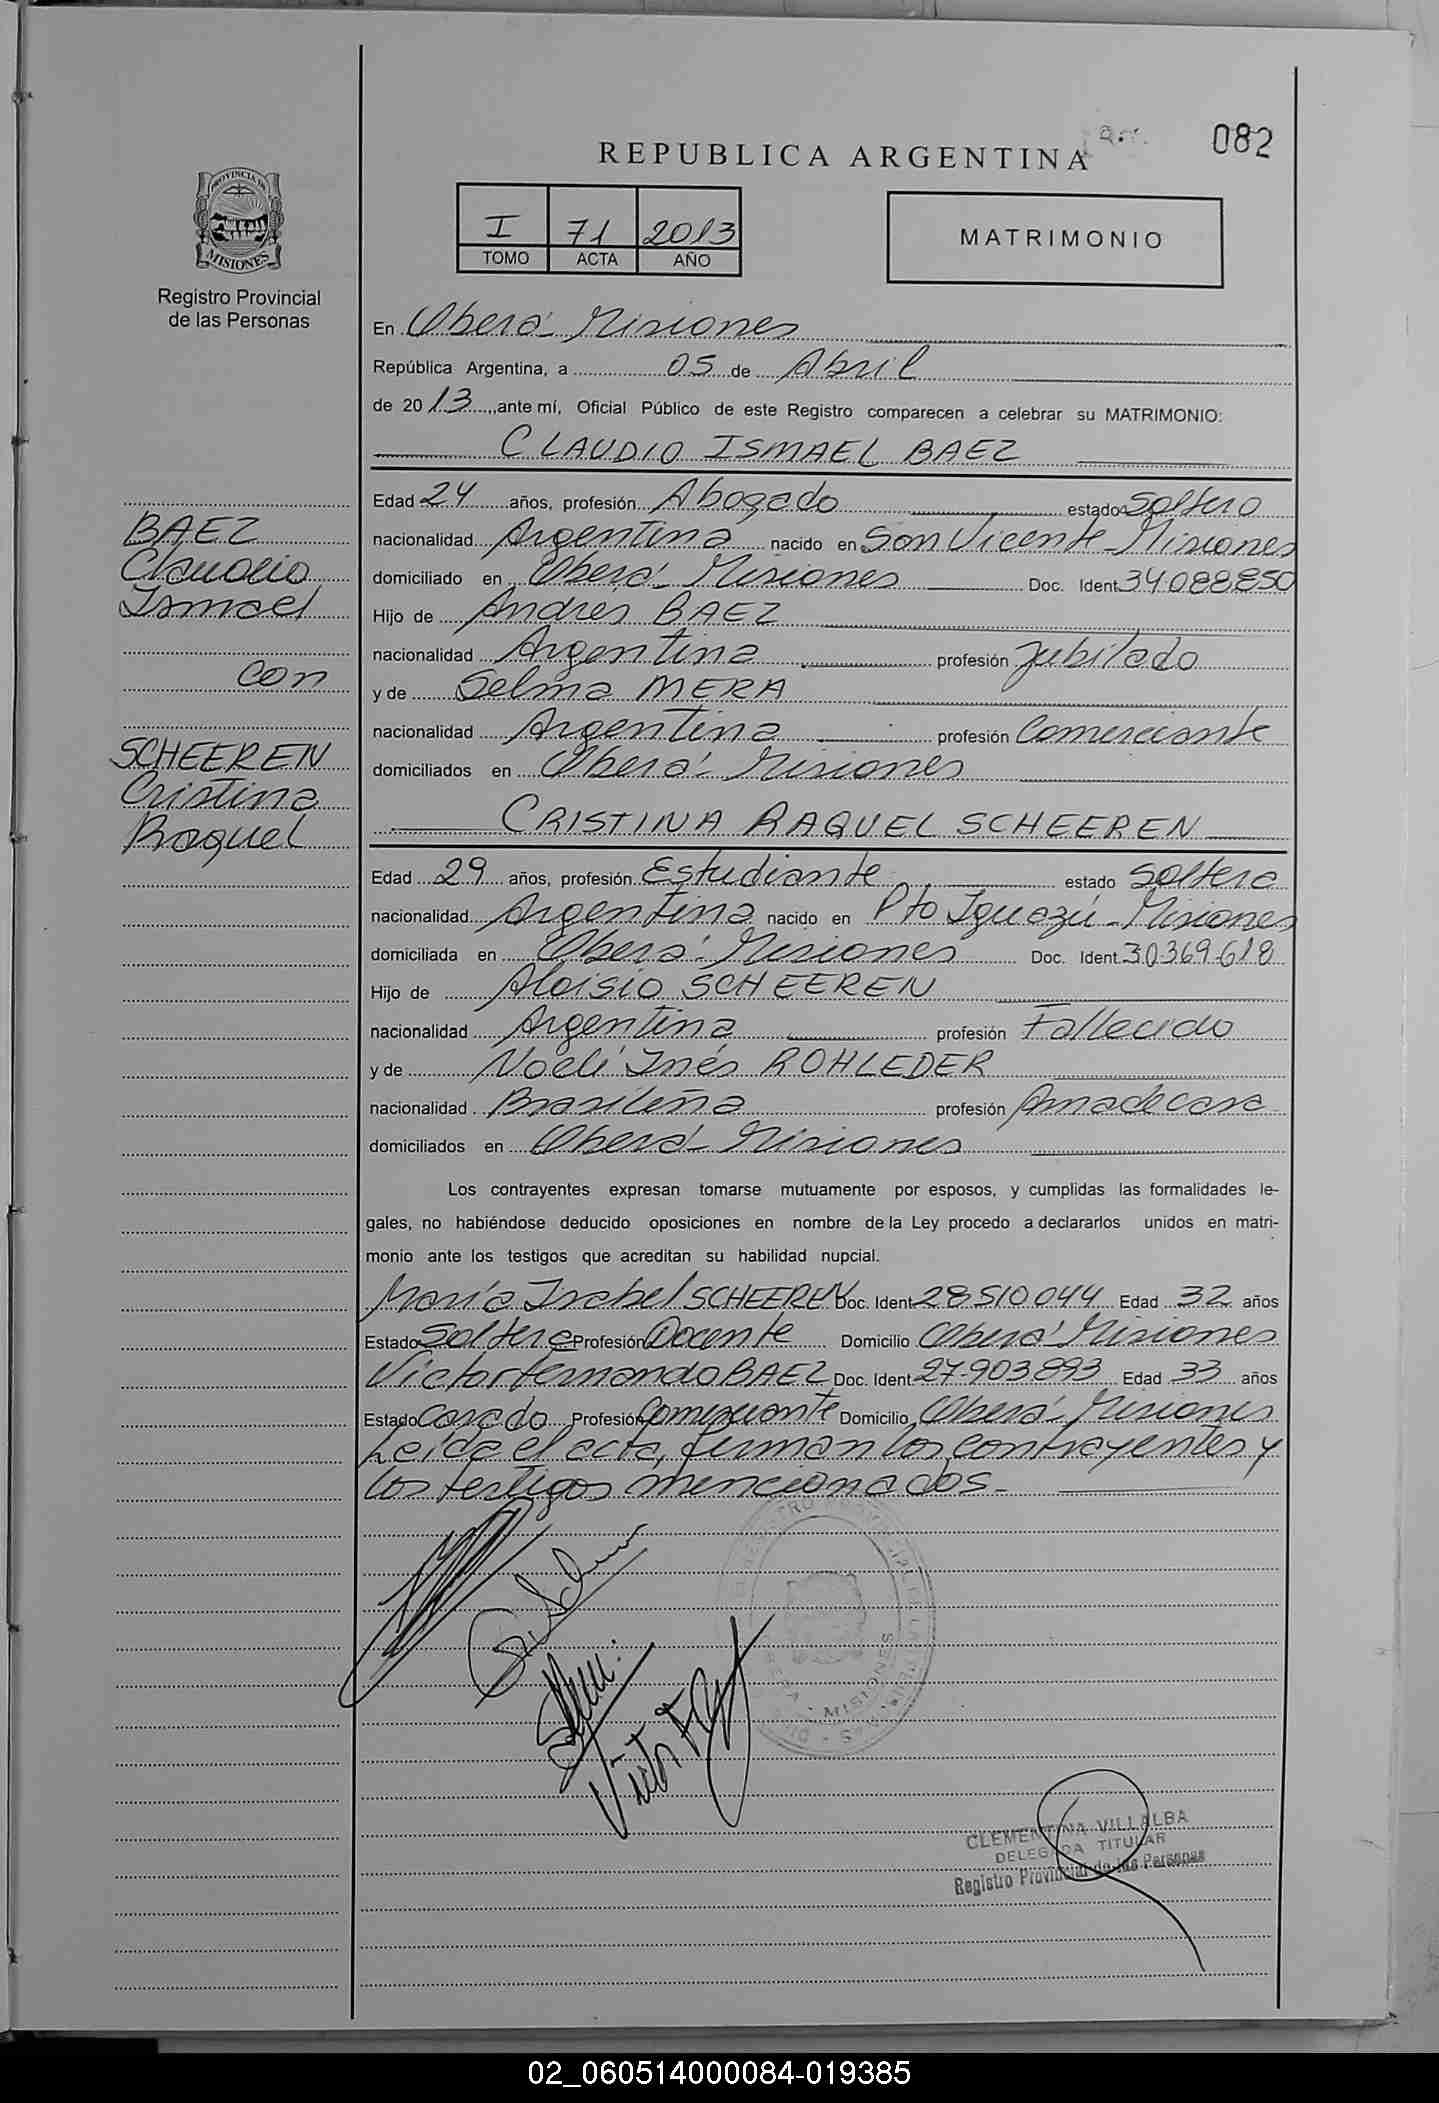 082
REPUBLICA ARGENTINA
I 71 2013
TOMO ACTA AÑO
MATRIMONIO
PROVINCIA DE
MISIONES
Registro Provincial
de las Personas
En Oberá - Misiones
República Argentina, a 05 de Abril
de 2013, ante mí, Oficial Público de este Registro comparecen a celebrar su MATRIMONIO:
CLAUDIO ISMAEL BAEZ
Edad 24 años, profesión Abogado estado Soltero
nacionalidad Argentina nacido en San Vicente - Misiones
domiciliado en Oberá - Misiones Doc. Ident 34.088.850
Hijo de Andrés BAEZ
nacionalidad Argentina profesión Jubilado
y de Selma MERA
nacionalidad Argentina profesión Comerciante
domiciliados en Oberá - Misiones
BAEZ
Claudio
Ismael
con
SCHEEREN
Cristina
Raquel
CRISTINA RAQUEL SCHEEREN
Edad 29 años, profesión Estudiante estado Soltera
nacionalidad Argentina nacido en Pto Iguazú - Misiones
domiciliada en Oberá - Misiones Doc. Ident 30.369.618
Hijo de Aloisio SCHEEREN
nacionalidad Argentina profesión Fallecido
y de Noelí Inés ROHLEDER
nacionalidad Brasileña profesión Ama de casa
domiciliados en Oberá - Misiones
Los contrayentes expresan tomarse mutuamente por esposos, y cumplidas las formalidades le-
gales, no habiéndose deducido oposiciones en nombre de la Ley procedo a declararlos unidos en matri-
monio ante los testigos que acreditan su habilidad nupcial.
María Isabel SCHEEREN Doc. Ident 28510044 Edad 32 años
Estado Soltera Profesión Docente Domicilio Oberá Misiones
Victor Fernando BAEZ Doc. Ident 27.903.893 Edad 33 años
Estado Casado Profesión Comerciante Domicilio Oberá - Misiones
Leída el acta, firman los contrayentes y
los testigos mencionados.
MISIONES
Victor F
CLEMENTINA VILLALBA
DELEGADA TITULAR
Registro Provincial de las Personas
02_060514000084-019385